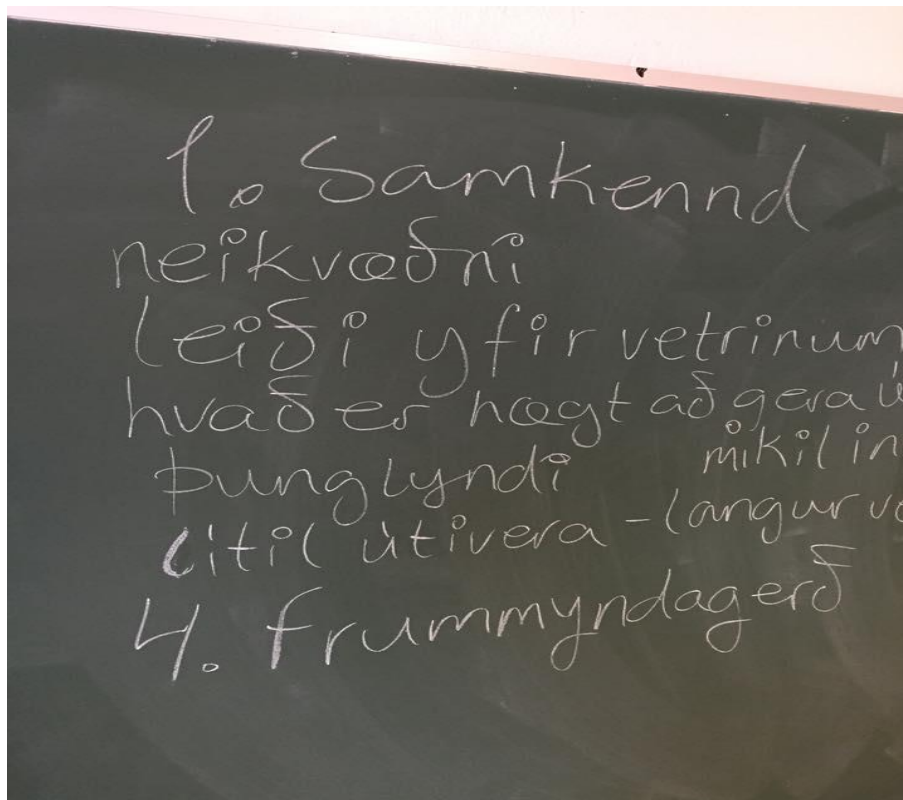 1. Samkennd
neikvæðni
leiði yfir vetrinum
hvað er hægt að gera
mikil
þunglyndi
lítil útivera - langur
4. frummyndagerð